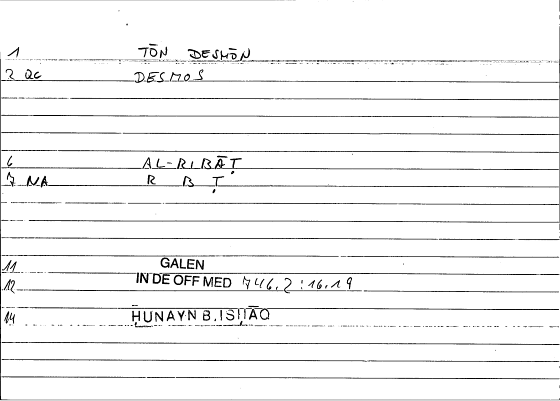 1 TŌN DESMŌN
2 QC DESMOS
6 AL-RIBĀṬ
7 NA R B Ṭ
11 GALEN
12 IN DE OFF MED 746.2:16.19
14 ḤUNAYN B. ISḤĀQ